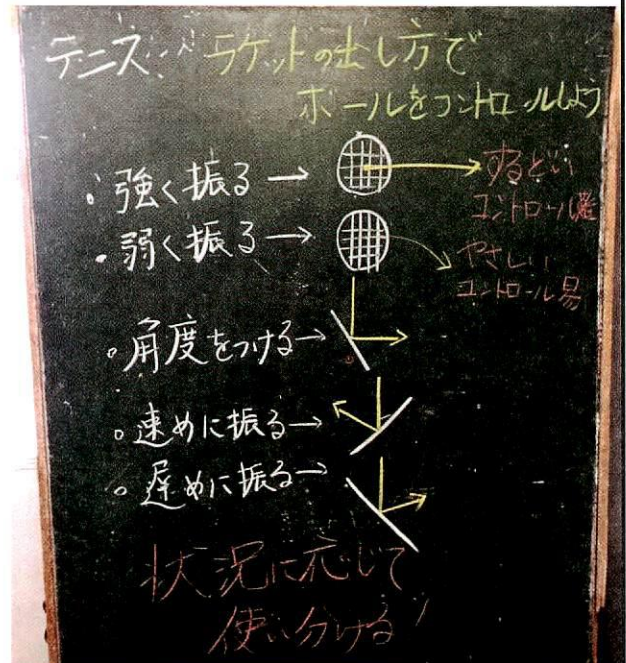 テニス ラケットの出し方で
ボールをコントロールしよう
・強く振る→
するどい
コントロール難
・弱く振る→
やさしい
コントロール易
・角度をつける→
・速めに振る→
・遅めに振る→
状況に応じて
使い分ける